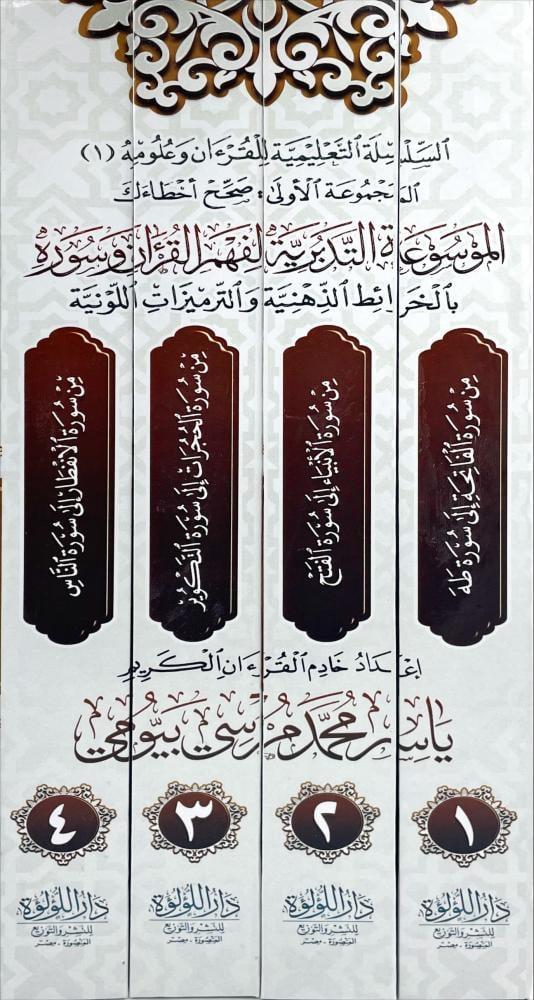 السلسلة التعليمية للقرءان وعلومه (١)
المجموعة الأولى: صحح أخطاءك
الموسوعة التدبرية لفهم القرءان وسوره
بالخرائط الذهنية والترميزات اللونية
من سورة الفاتحة إلى سورة طه
من سورة الأنبياء إلى سورة الفتح
من سورة الحجرات إلى سورة التكوير
من سورة الانفطار إلى سورة الناس
إعداد خادم القرءان الكريم
ياسر محمد مرسي بيومي
١
٢
٣
٤
دار اللؤلؤة
للنشر والتوزيع
المنصورة - مصر
دار اللؤلؤة
للنشر والتوزيع
المنصورة - مصر
دار اللؤلؤة
للنشر والتوزيع
المنصورة - مصر
دار اللؤلؤة
للنشر والتوزيع
المنصورة - مصر